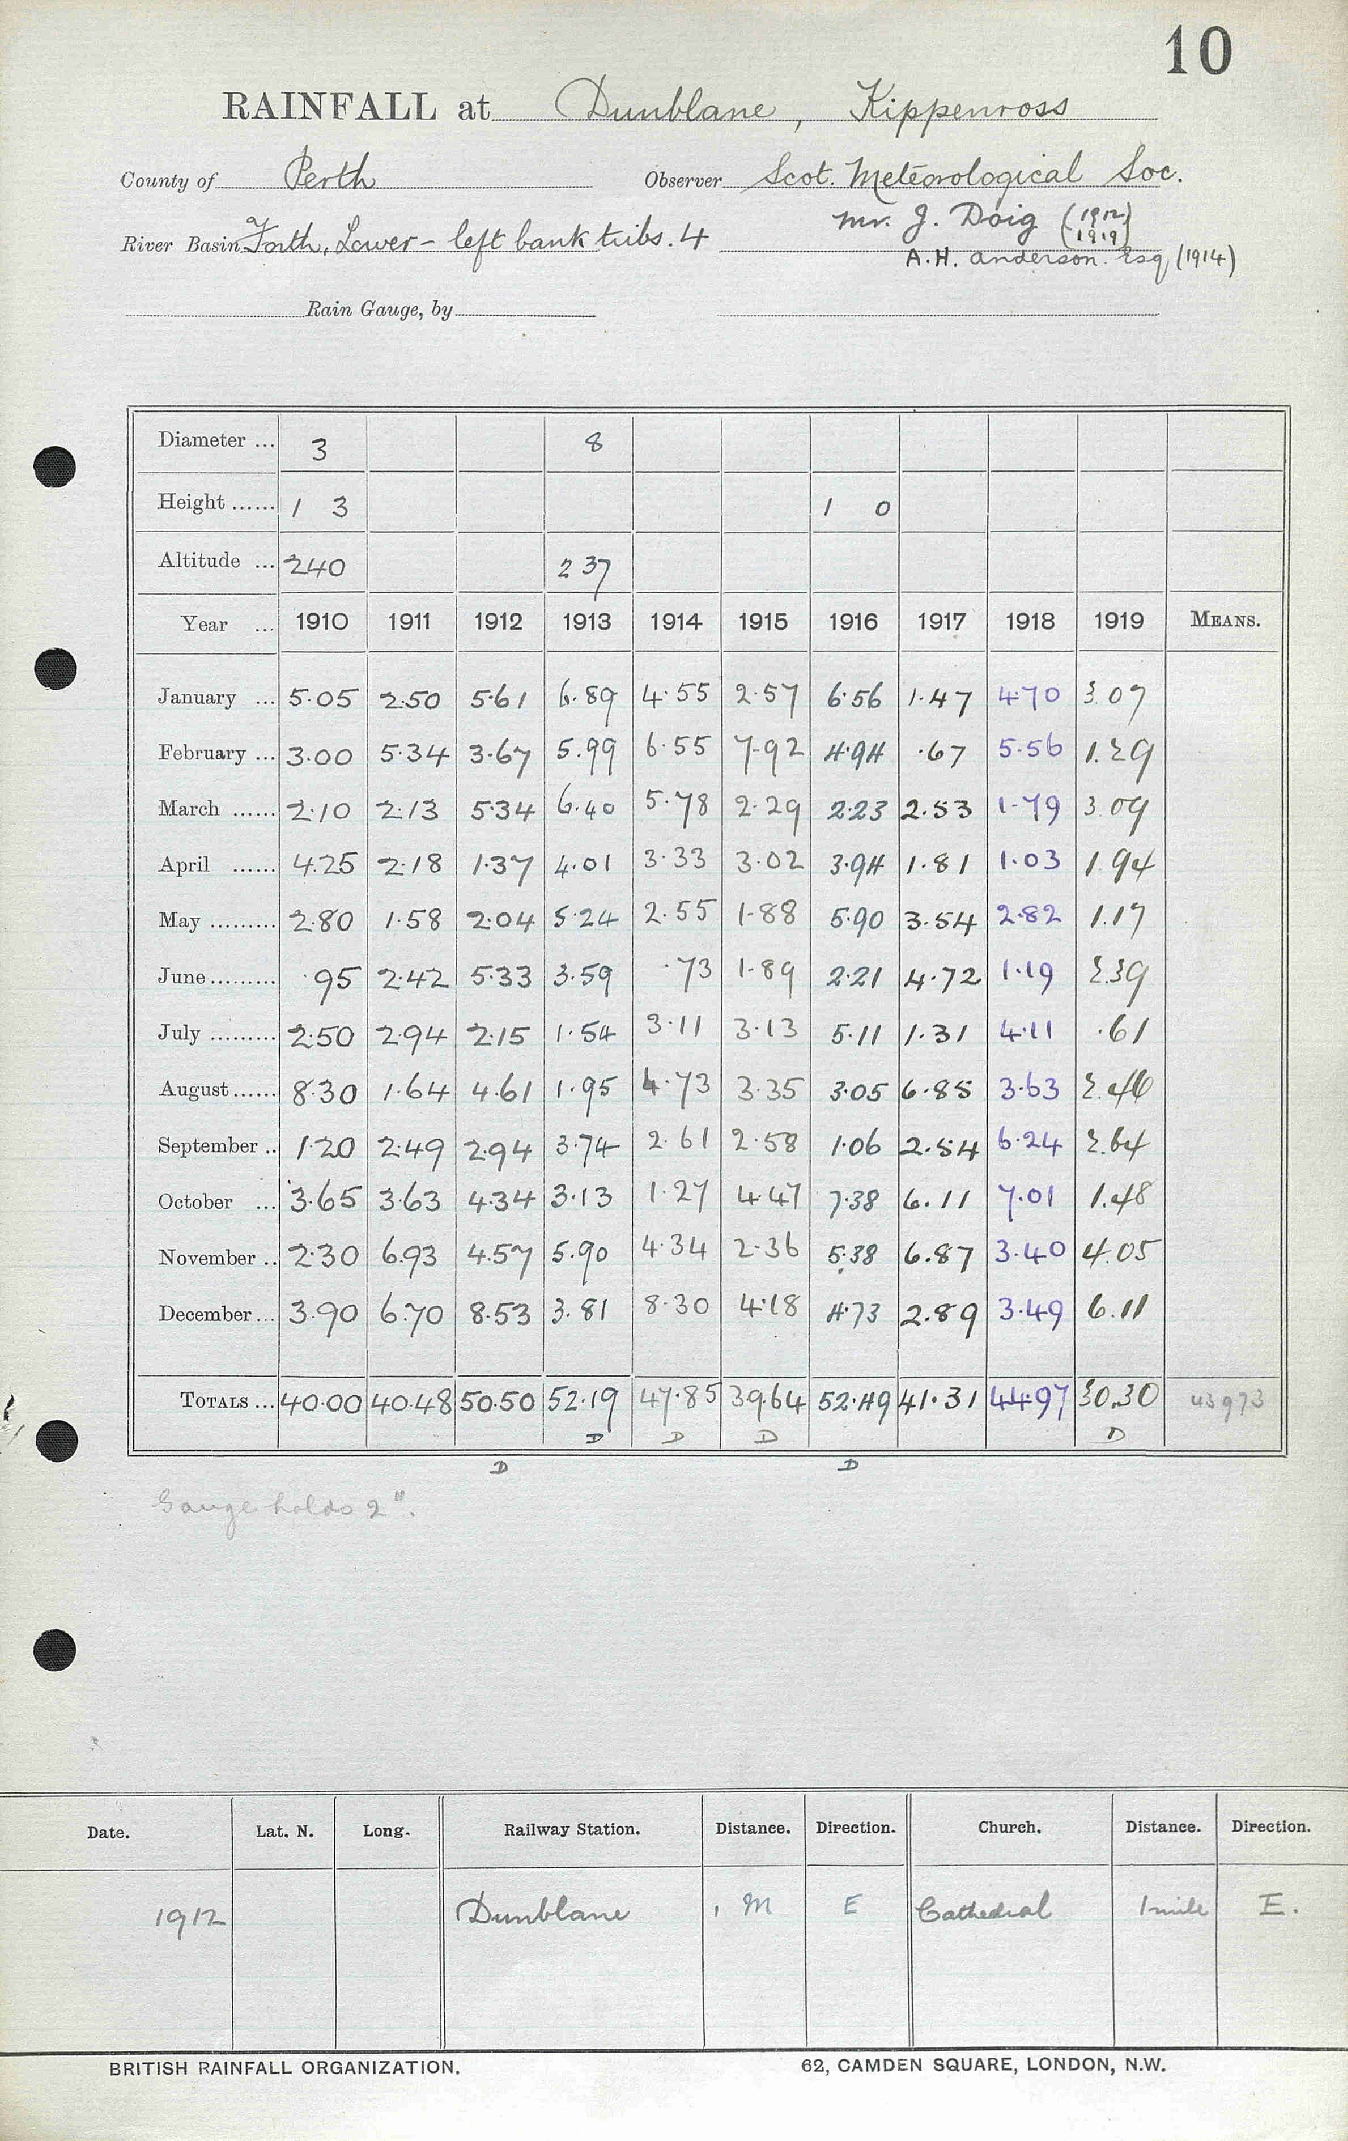 10
RAINFALL at Dunblane, Kippenross
County of Perth Observer Scot. Meteorological Soc.
River Basin Forth, Lower - left bank tribs. 4 Mr. J. Doig (1912) (1919)
A.H. Anderson. Esq (1914)
Rain Gauge, by
Diameter ... 3 8
Height ...... 1 3 1 0
Altitude ... 240 237
Year ... 1910 1911 1912 1913 1914 1915 1916 1917 1918 1919 MEANS.
January ... 5.05 2.50 5.61 6.89 4.55 2.57 6.56 1.47 4.70 3.07
February ... 3.00 5.34 3.67 5.99 6.55 7.92 4.94 .67 5.56 1.29
March ...... 2.10 2.13 5.34 6.40 5.78 2.29 2.23 2.53 1.79 3.09
April ...... 4.25 2.18 1.37 4.01 3.33 3.02 3.94 1.81 1.03 1.94
May ......... 2.80 1.58 2.04 5.24 2.55 1.88 5.90 3.54 2.82 1.17
June ......... .95 2.42 5.33 3.59 .73 1.89 2.21 4.72 1.19 2.39
July ......... 2.50 2.94 2.15 1.54 3.11 3.13 5.11 1.31 4.11 .61
August ...... 8.30 1.64 4.61 1.95 4.73 3.35 3.05 6.85 3.63 2.46
September .. 1.20 2.49 2.94 3.74 2.61 2.58 1.06 2.54 6.24 2.64
October ... 3.65 3.63 4.34 3.13 1.27 4.47 7.38 6.11 7.01 1.48
November .. 2.30 6.93 4.57 5.90 4.34 2.36 5.38 6.87 3.40 4.05
December ... 3.90 6.70 8.53 3.81 8.30 4.18 4.73 2.89 3.49 6.11
TOTALS ... 40.00 40.48 50.50 52.19 47.85 39.64 52.49 41.31 44.97 30.30 43973
D D D D
D D
Gauge holds 2".
Date. Lat. N. Long. Railway Station. Distance. Direction. Church. Distance. Direction.
1912 Dunblane 1 M E Cathedral 1 mile E.
BRITISH RAINFALL ORGANIZATION. 62, CAMDEN SQUARE, LONDON, N.W.